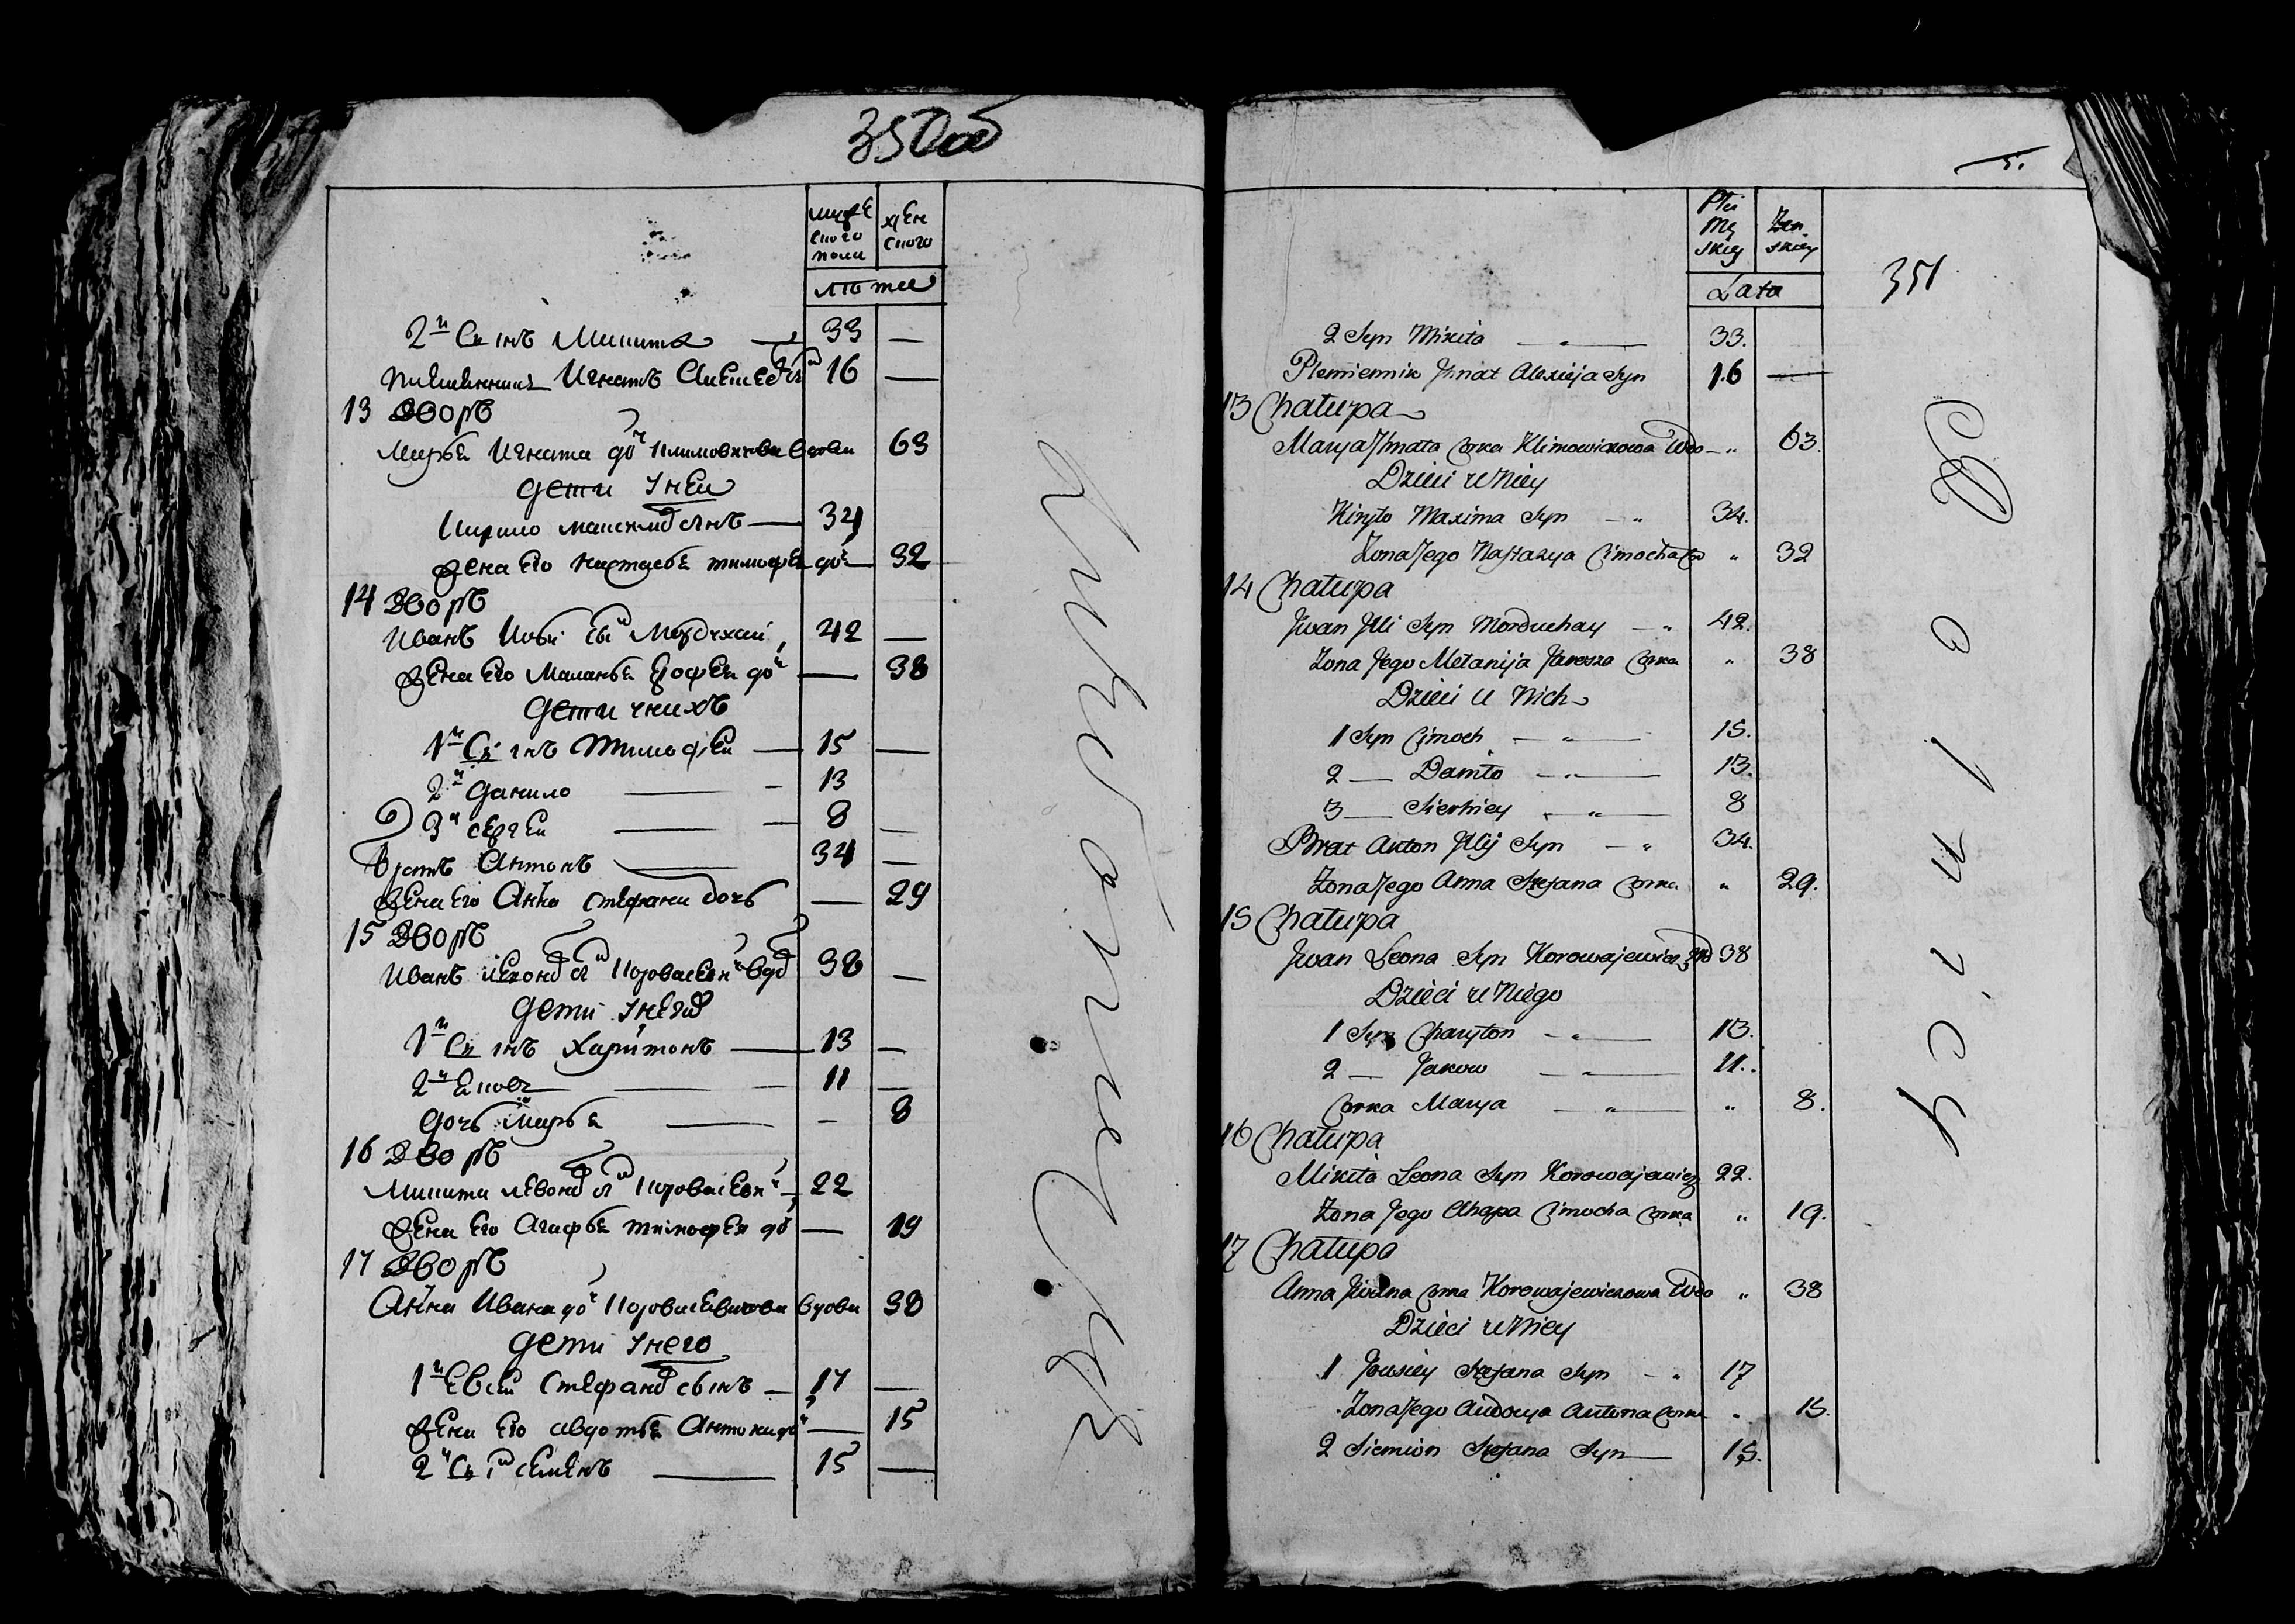 350об
мужескаго пола
женскаго
лѣта
2й Сынъ Микита — 33 —
племянникъ Игнатъ Алексѣя сынъ 16 —
13 Дворъ
Марья Игната дочь Климовичова вдова 63
дети у неи
Кирило Максима сынъ — 34
жена его Настасья тимофея дочь — 32
14 Дворъ
Иванъ Ильи сынъ Мордухай 42 —
жена его Маланья Ерофея дочь — 38
дети у нихъ
1й Сынъ Тимофеи — 15 —
2й Данило — 13
3й Сергеи — 8 —
Братъ Антонъ — 34 —
жена его Анна Стефана дочь — 29
15 Дворъ
Иванъ Леона сынъ Короваевич вдо 38 —
дети у него
1й Сынъ Харитонъ — 13 —
2й Яковъ — 11 —
дочь Марья — 8
16 Дворъ
Микита Левона сынъ Короваевич — 22
жена его Агафья тимофея дочь — 19
17 Дворъ
Анна Ивана дочь Короваевичова вдова 38
дети у него
1й Евсеи Стефана сынъ — 17 —
жена его авдотья Антона дочь — 15
2й Сынъ семенъ — 15 —
5.
351
Płci Męskiey
Żenskiey
Lata
2 Syn Mikita — " — 33.
Plemiennik Ihnat Alexieja Syn 16 —
13 Chałupa
Marya Ihnata Corka Klimowiczowa Wdo — " 63.
Dzieci u Niey
Kiryło Maxima Syn — " 34.
Zona Jego Nastazya Cimocha Co " 32
14 Chałupa
Jwan Jlli Syn Morduchay — " 42.
Zona Jego Mełanija Jarosza Corka " 38
Dzieci u Nich
1 Syn Cimoch — " — 15.
2 — Daniło — " — 13.
3 — Sierhiey — " — 8
Brat Anton Jllij Syn — " 34.
Zona Jego Anna Stefana Corka " 29.
15 Chałupa
Jwan Leona Syn Korowajewicz Wd 38
Dzieci u Niego
1 Syn Charyton — " — 13.
2 — Jakow — " — 11.
Corka Marya — " — " 8.
16 Chałupa
Mikita Leona Syn Korowajewicz 22.
Zona Jego Ahapa Cimocha Corka " 19.
17 Chałupa
Anna Jwana Corka Korowajewiczowa Wdo " 38
Dzieci u Niey
1 Jewsiey Stefana Syn — " 17
Zona Jego Audocya Antona Corka " 15.
2 Siemion Stefana Syn — 15.